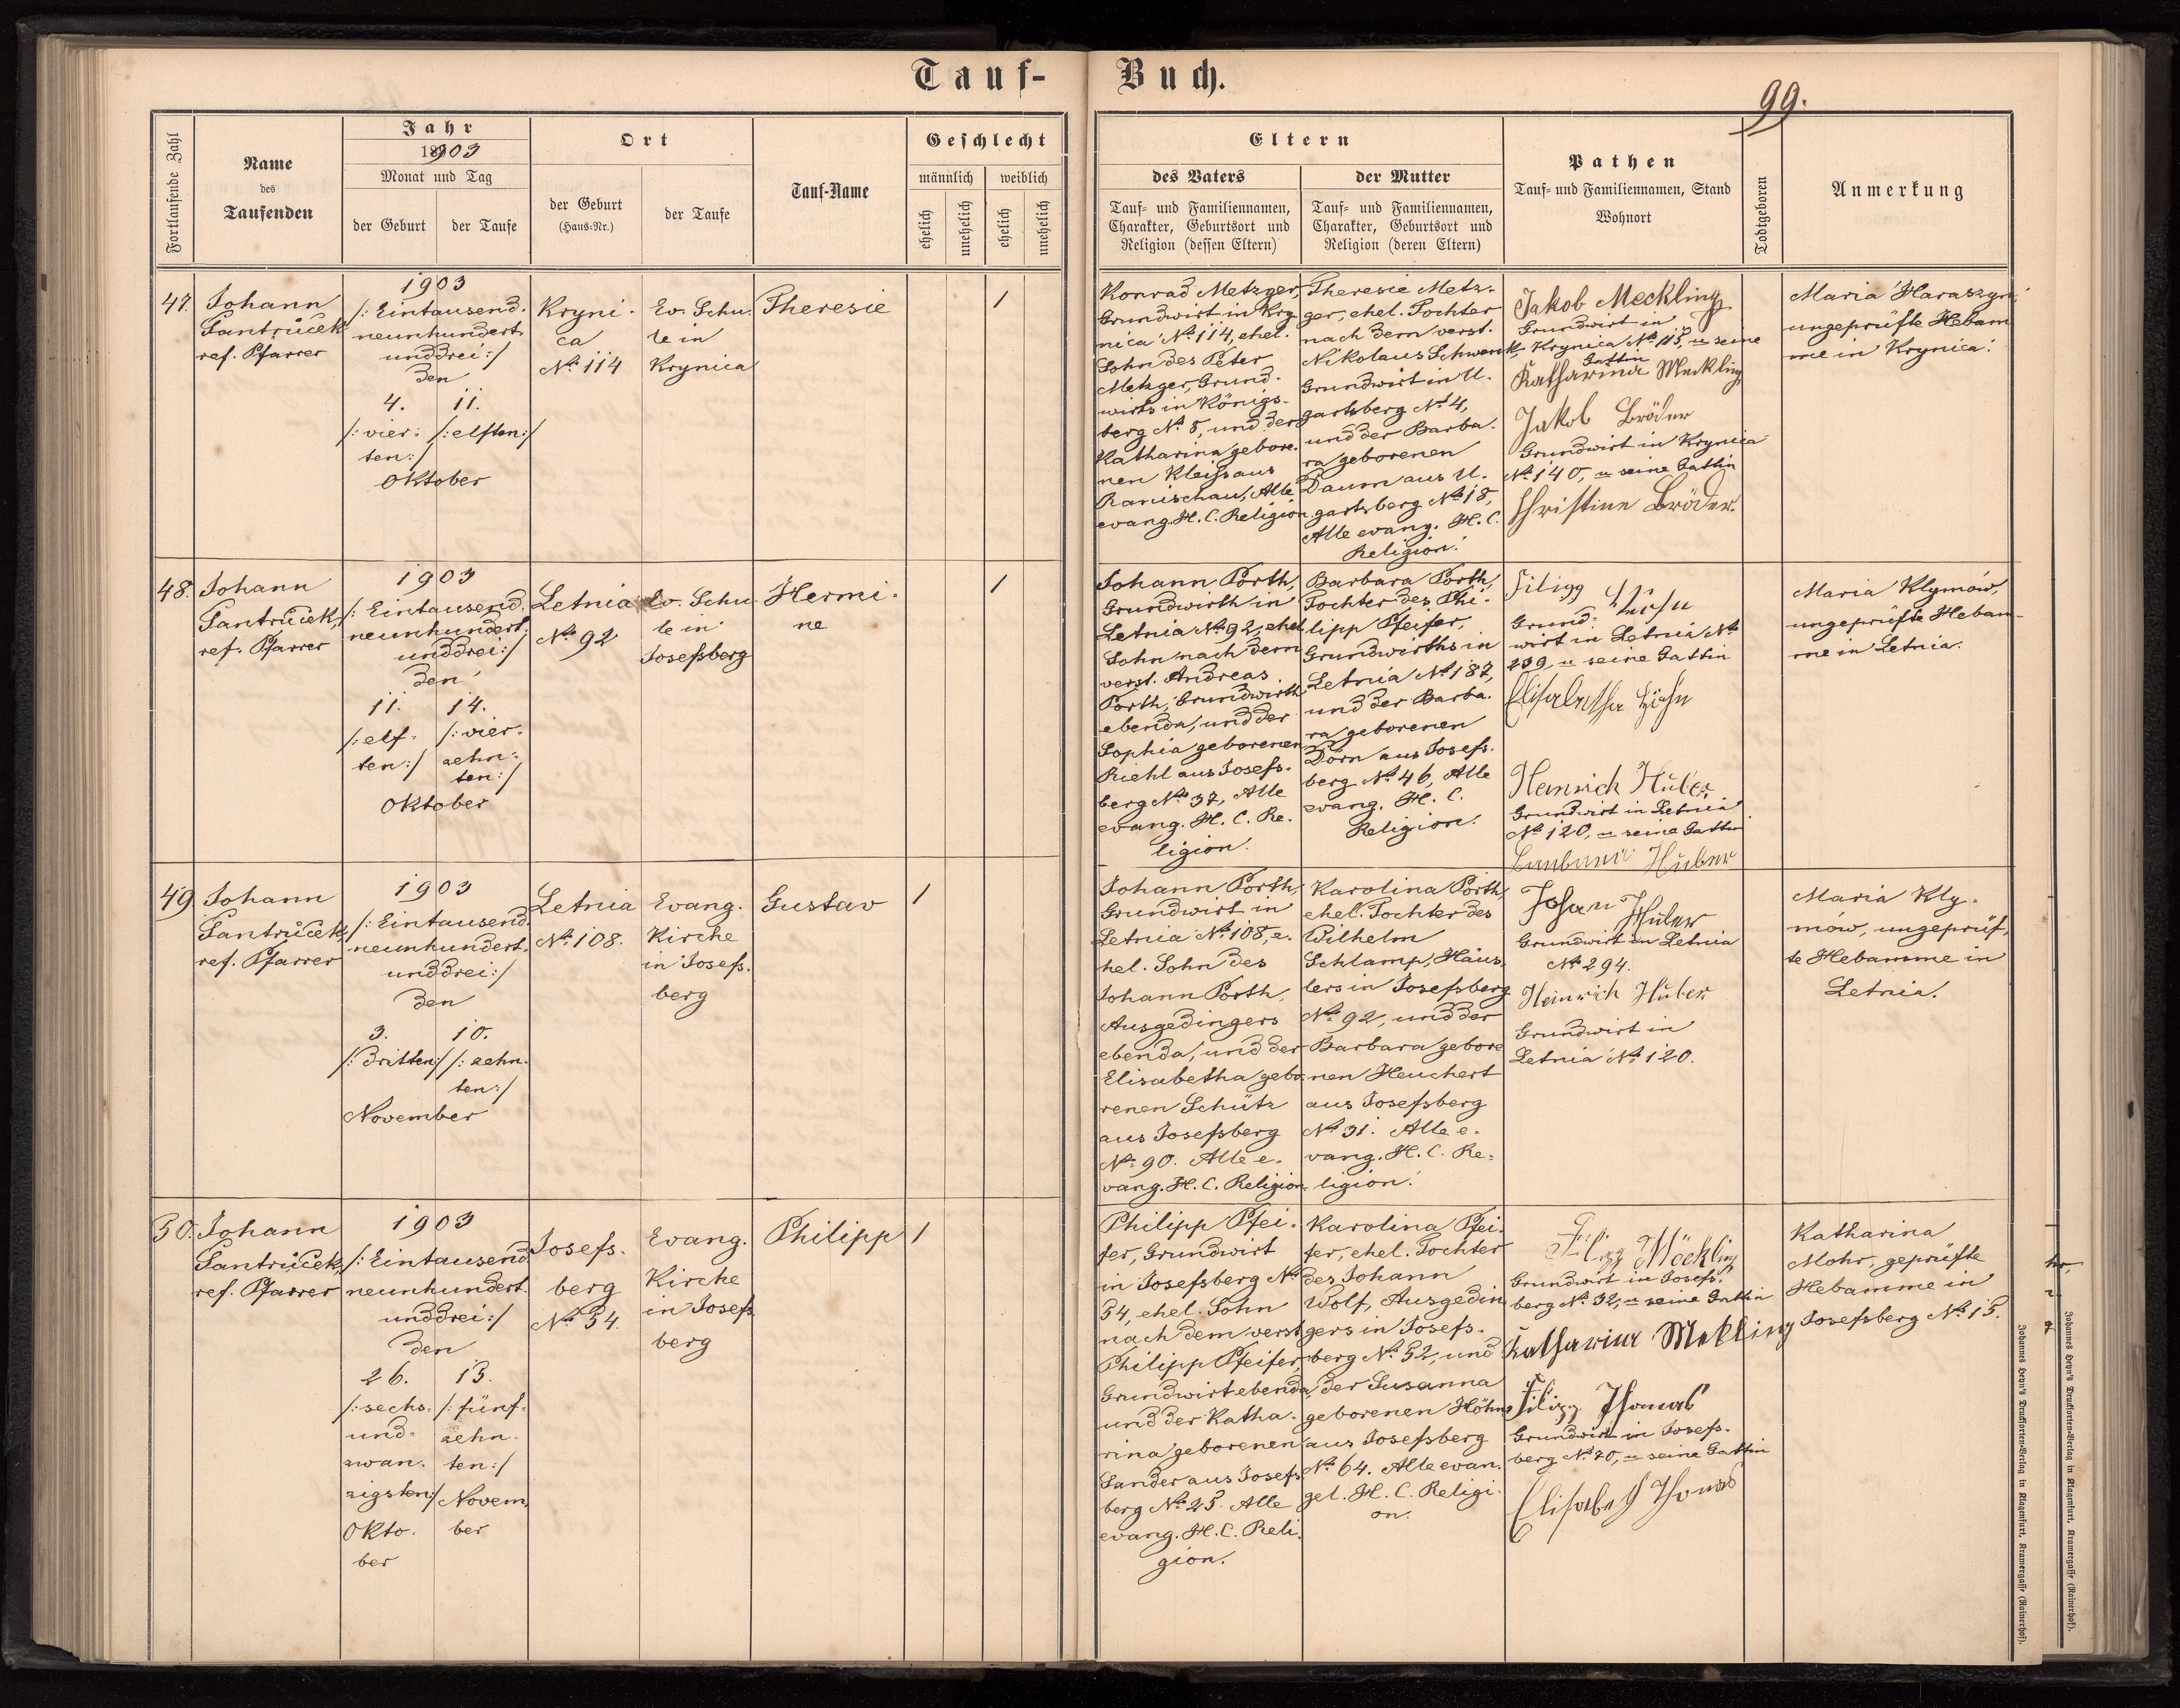 Tauf-
Buch.
99.
Fortlaufende Zahl
Name
des
Taufenden
Jahr
1903
Monat und Tag
der Geburt
der Taufe
Ort
der Geburt
(Haus-Nr.)
der Taufe
Tauf-Name
Geschlecht
männlich
weiblich
ehelich
unehelich
ehelich
unehelich
Eltern
des Vaters
Tauf- und Familiennamen,
Charakter, Geburtsort und
Religion (dessen Eltern)
der Mutter
Tauf- und Familiennamen,
Charakter, Geburtsort und
Religion (deren Eltern)
Pathen
Tauf- und Familiennamen, Stand
Wohnort
Todtgeboren
Anmerkung
47.
Johann
Fantrůček
ref. Pfarrer
1903
/: Eintausend-
neunhundert
unddrei :/
den
4.
/: vier-
ten :/
11.
/: elften :/
Oktober
Kryni-
ca
No 114
Ev. Schu-
le in
Krynica
Theresie
1
Konrad Metzger,
Grundwirt in Kry-
nica No 114, ehel.
Sohn des Peter
Metzger, Grund-
wirts in Königs-
berg No 8, und der
Katharina gebore-
nen Kleiß aus
Ranischau, Alle
evang. H. C. Religion
Theresie Metz-
ger, ehel. Tochter
nach dem verst.
Nikolaus Schwenk,
Grundwirt in U-
gartsberg No 4,
und der Barba-
ra geborenen
Daum aus U-
gartsberg No 18,
Alle evang. H. C.
Religion.
Jakob Meckling
Grundwirt in
Krynica No 115, u seine
Gattin
Katharina Meckling
Jakob Bröder
Grundwirt in Krynica
No 140, u seine Gattin
Christine Bröder.
ungeprüfte Hebam
me in Krynica.
48.
Johann
Fantrůček,
ref. Pfarrer
1903
/: Eintausend-
neunhundert-
unddrei :/
den
11.
/: elf-
ten :/
14.
/: vier-
zehn-
ten :/
Oktober
Letnia
No 92
Ev. Schu
le in
Josefsberg
Hermi-
ne
1
Johann Porth,
Grundwirth in
Letnia No 92, ehel
Sohn nach dem
verst. Andreas
Porth, Grundwirth
ebenda, und der
Sophia geborenen
Riehl aus Josefs-
berg No 37, Alle
evang. H. C. Re-
ligion.
Barbara Porth,
Tochter des Phi-
lipp Pfeifer,
Grundwirths in
Letnia No 187,
und der Barba-
ra geborenen
Dörn aus Josefs-
berg No 46, Alle
evang. H. C.
Religion.
Filipp Höhn
Grund-
wirt in Letnia No
239, u seine Gattin
Elisabetha Höhn
Heinrich Huber
Grundwirt in Letnia
No 120, u seine Gattin
Huber
Maria Klymów,
ungeprüfte Hebam-
me in Letnia.
49
Johann
Fantrůček,
ref. Pfarrer
1903
/: Eintausend-
neunhundert-
unddrei :/
den
3.
/: dritten :/
10.
/: zehn-
ten :/
November
Letnia
No 108.
Evang.
Kirche
in Josefs-
berg
Gustav
1
Johann Porth,
Grundwirt in
Letnia No 108, e-
hel. Sohn des
Johann Porth,
Ausgedingers
ebenda, und der
Elisabetha gebo-
renen Schütz
aus Josefsberg
No 90. Alle e-
vang. H. C. Religion-
Karolina Porth,
ehel. Tochter des
Wilhelm
Schlamp, Häus-
lers in Josefsberg
No 92, und der
Barbara gebore
nen Heuchert
aus Josefsberg
No 31. Alle e-
vang. H. C. Re-
ligion.
Johan Huber
Grundwirt in Letnia
No 294.
Heinrich Huber
Grundwirt in
Letnia No 120.
Maria Kly-
mów, ungeprüf-
te Hebamme in
Letnia.
50.
Johann
Fantrůček,
ref. Pfarrer
1903
/: Eintausend
neunhundert-
unddrei :/
den
26.
/: sechs-
und-
zwan-
zigsten :/
Okto-
ber
15.
/: fünf-
zehn-
ten :/
Novem-
ber
Josefs-
berg
No 54.
Evang.
Kirche
in Josefs
berg
Philipp
1
Philipp Pfei-
fer, Grundwirt
in Josefsberg No
54, ehel. Sohn
nach dem verst
Philipp Pfeifer,
Grundwirt ebenda,
und der Katha-
rina geborenen
Sander aus Josefs
berg No 25. Alle
evang. H. C. Reli-
gion.
Karolina Pfei-
fer, ehel. Tochter
des Johann
Wolf, Ausgedin
gers in Josefs-
berg No 52, und
der Susanna
geborenen Höhn
aus Josefsberg
No 64. Alle evan-
gel. H. C. Religi-
on.
Filipp Möckling
Grundwirt in Josefs-
berg No 32, u seine Gattin
Katharina Mekling
Filipp Thomas
Grundwirt in Josefs-
berg No 70, u seine Gattin
Elisabeth Thomas
Katharina
Mohr, geprüfte
Hebamme in
Josefsberg No 15.
Johannes Heyn's Drucksorten-Verlag in Klagenfurt, Kramergasse (Rainerhof).
Johannes Heyn's Drucksorten-Verlag in Klagenfurt, Kramergasse (Rainerhof).